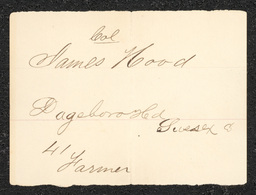 Col
James Hood
Dagsboro Hd
Sussex C
41
Farmer